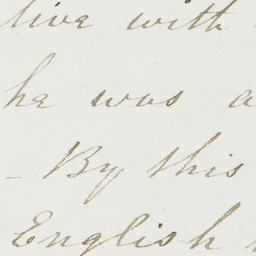 live with
he was a
- By this
English